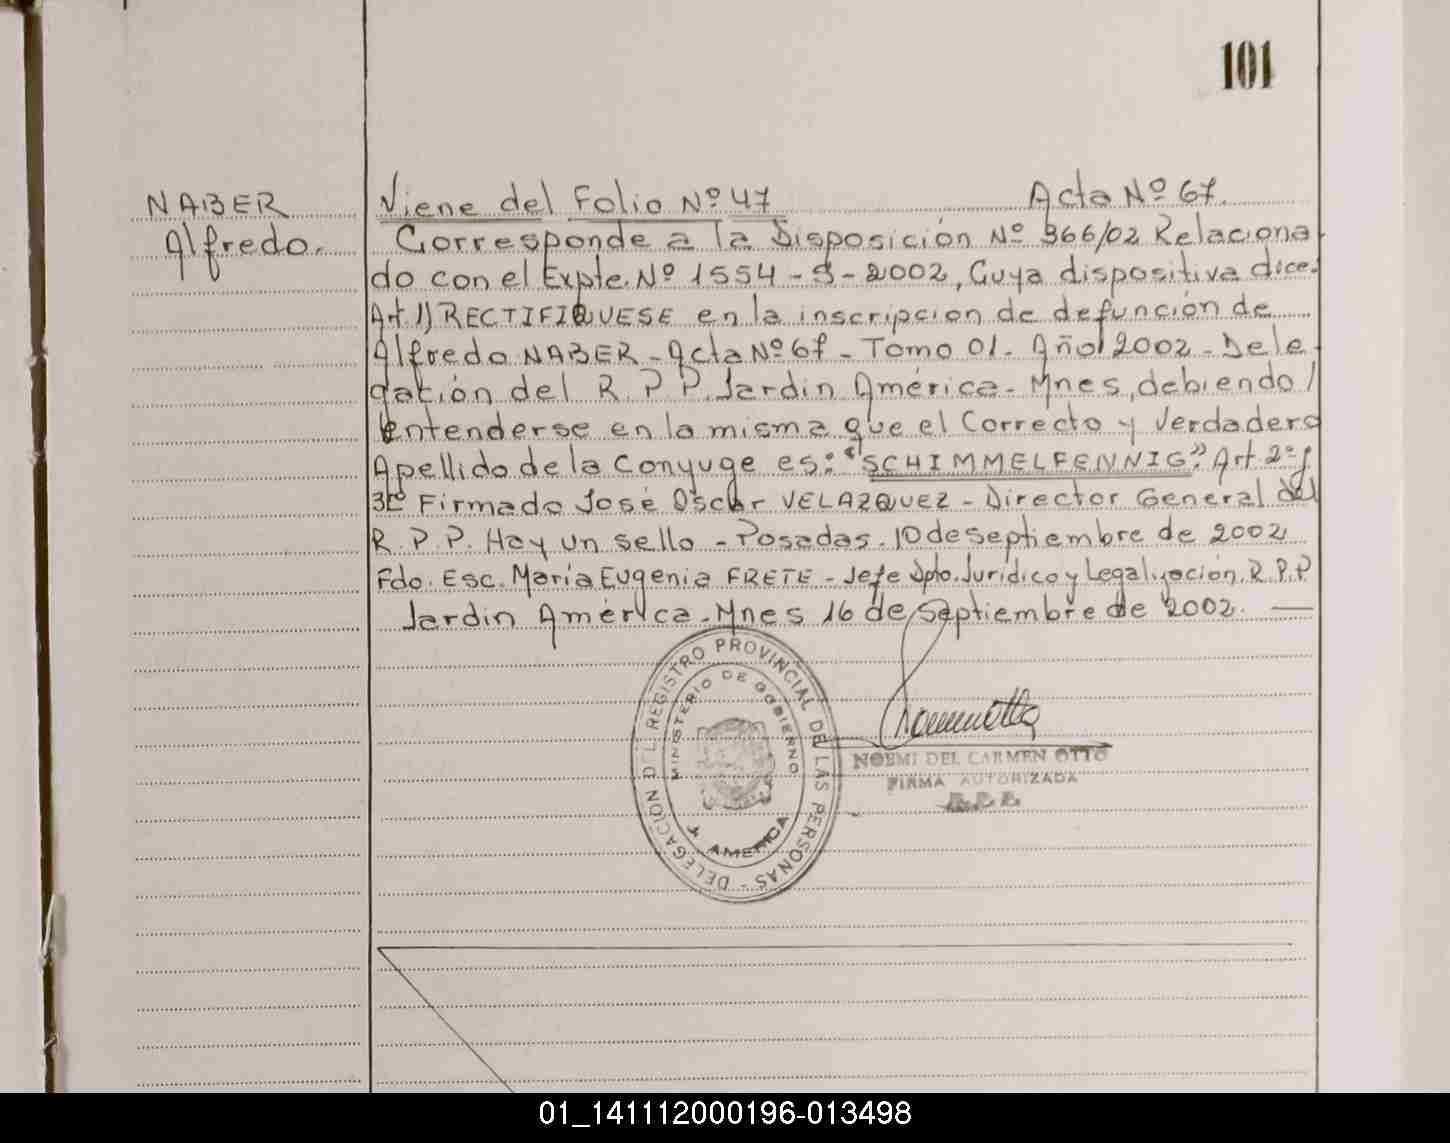 101
NABER
Alfredo.
Viene del Folio Nº 47 Acta Nº 67.
Corresponde a la Disposición Nº 366/02 Relaciona
do con el Expte. Nº 1554-S-2002, Cuya dispositiva dice:
Art 1) RECTIFIQUESE en la inscripcion de defunción de
Alfredo NABER - Acta Nº 67 - Tomo 01. Año 2002 - Dele
gación del R.P.P. Jardin América - Mnes, debiendo /
entenderse en la misma que el Correcto y Verdadero
Apellido de la Conyuge es: "SCHIMMELFENNIG". Art. 2º y
3º Firmado José Oscar VELAZQUEZ - Director General del
R.P.P. Hay un sello - Posadas. 10 de septiembre de 2002
Fdo. Esc. María Eugenia FRETE - Jefe Dpto. Jurídico y Legalización. R.P.P
Jardin América - Mnes 16 de Septiembre de 2002. —
DELEGACION DEL REGISTRO PROVINCIAL DE LAS PERSONAS -
MINISTERIO DE GOBIERNO
J. AMERICA
NOEMI DEL CARMEN OTTO
FIRMA AUTORIZADA
01_141112000196-013498